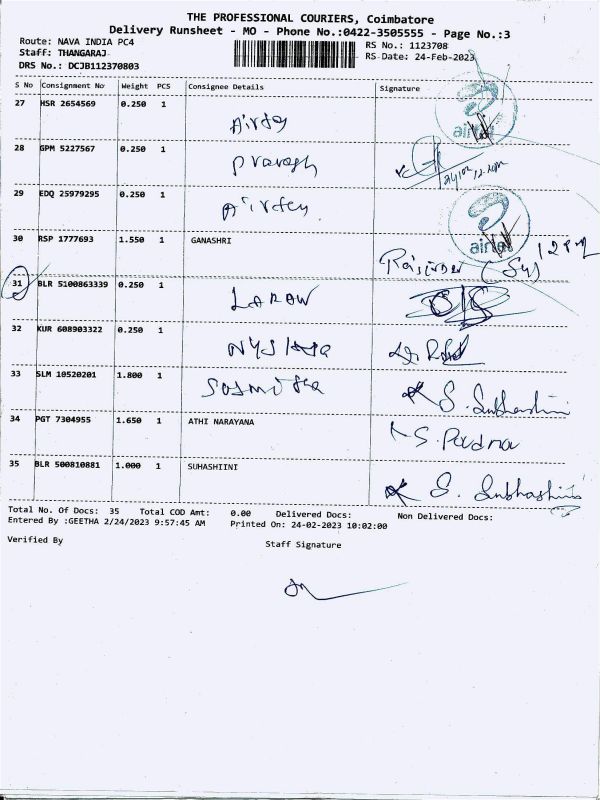 THE PROFESSIONAL COURIERS, Coimbatore
Delivery Runsheet - MO - Phone No.:0422-3505555 - Page No.:3
Route: NAVA INDIA PC4 RS No.: 1123708
Staff: THANGARAJ RS Date: 24-Feb-2023
DRS No.: DCJB112370803
S No Consignment No Weight PCS Consignee Details Signature
27 HSR 2654569 0.250 1
airtel
28 GPM 5227567 0.250 1
29 EDQ 25979295 0.250 1
airtel
30 RSP 1777693 1.550 1 GANASHRI
12 pm
31 BLR 5100863339 0.250 1
32 KUR 608903322 0.250 1
33 SLM 10520201 1.800 1
S. Subhashini
34 PGT 7304955 1.650 1 ATHI NARAYANA
S. Padma
35 BLR 500810881 1.000 1 SUHASHIINI
S. Subhashini
Total No. Of Docs: 35 Total COD Amt: 0.00 Delivered Docs: Non Delivered Docs:
Entered By :GEETHA 2/24/2023 9:57:45 AM Printed On: 24-02-2023 10:02:00
Verified By Staff Signature